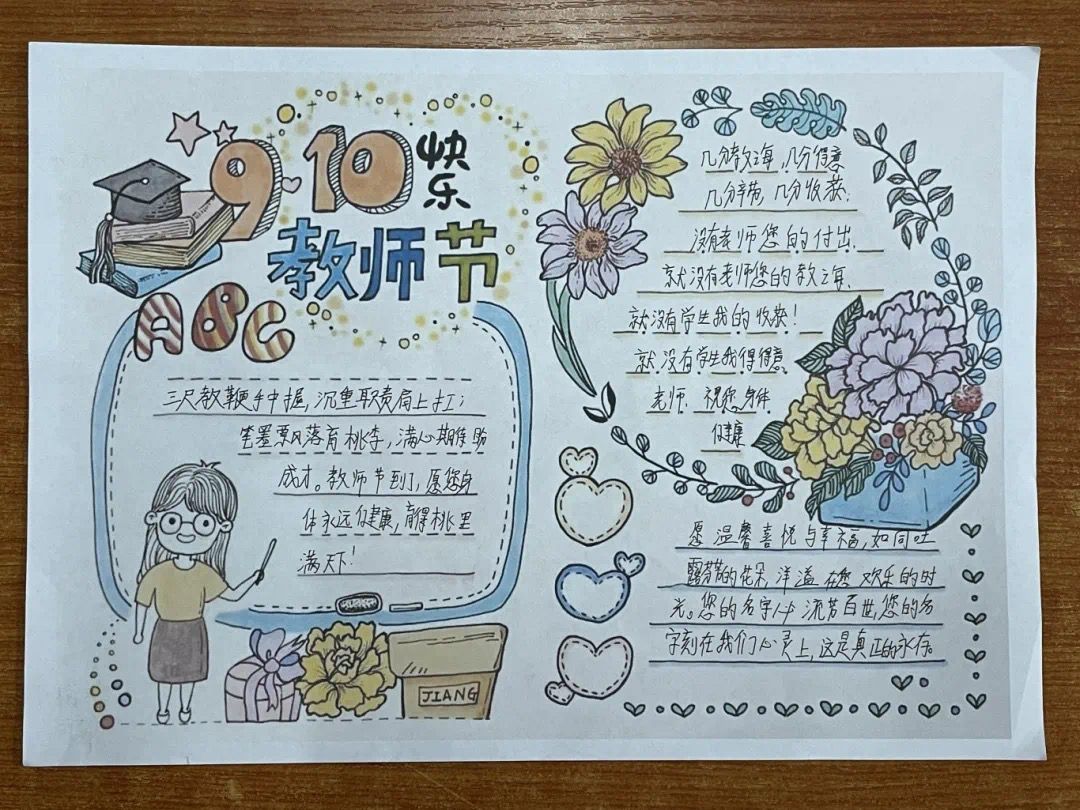 9.10
快乐
教师节
ABC
三尺教鞭手中握,沉重职责肩上扛;
笔墨票风落育桃李,满心期维助
成才。教师节到了,愿您身
体永远健康,育得桃里
满天下!
JIANG
几分教诲,几分得意
几分辛劳,几分收获.
没有老师您的付出.
就没有老师您的教诲.
就没有学生我的收获!
就没有学生我得得意.
老师.祝您身体
健康
愿温馨喜悦与幸福,如同吐
露芬芳的花朵,洋溢在您欢乐的时
光。您的名字流芳百世,您的名
字刻在我们心灵上,这是真正的永存。